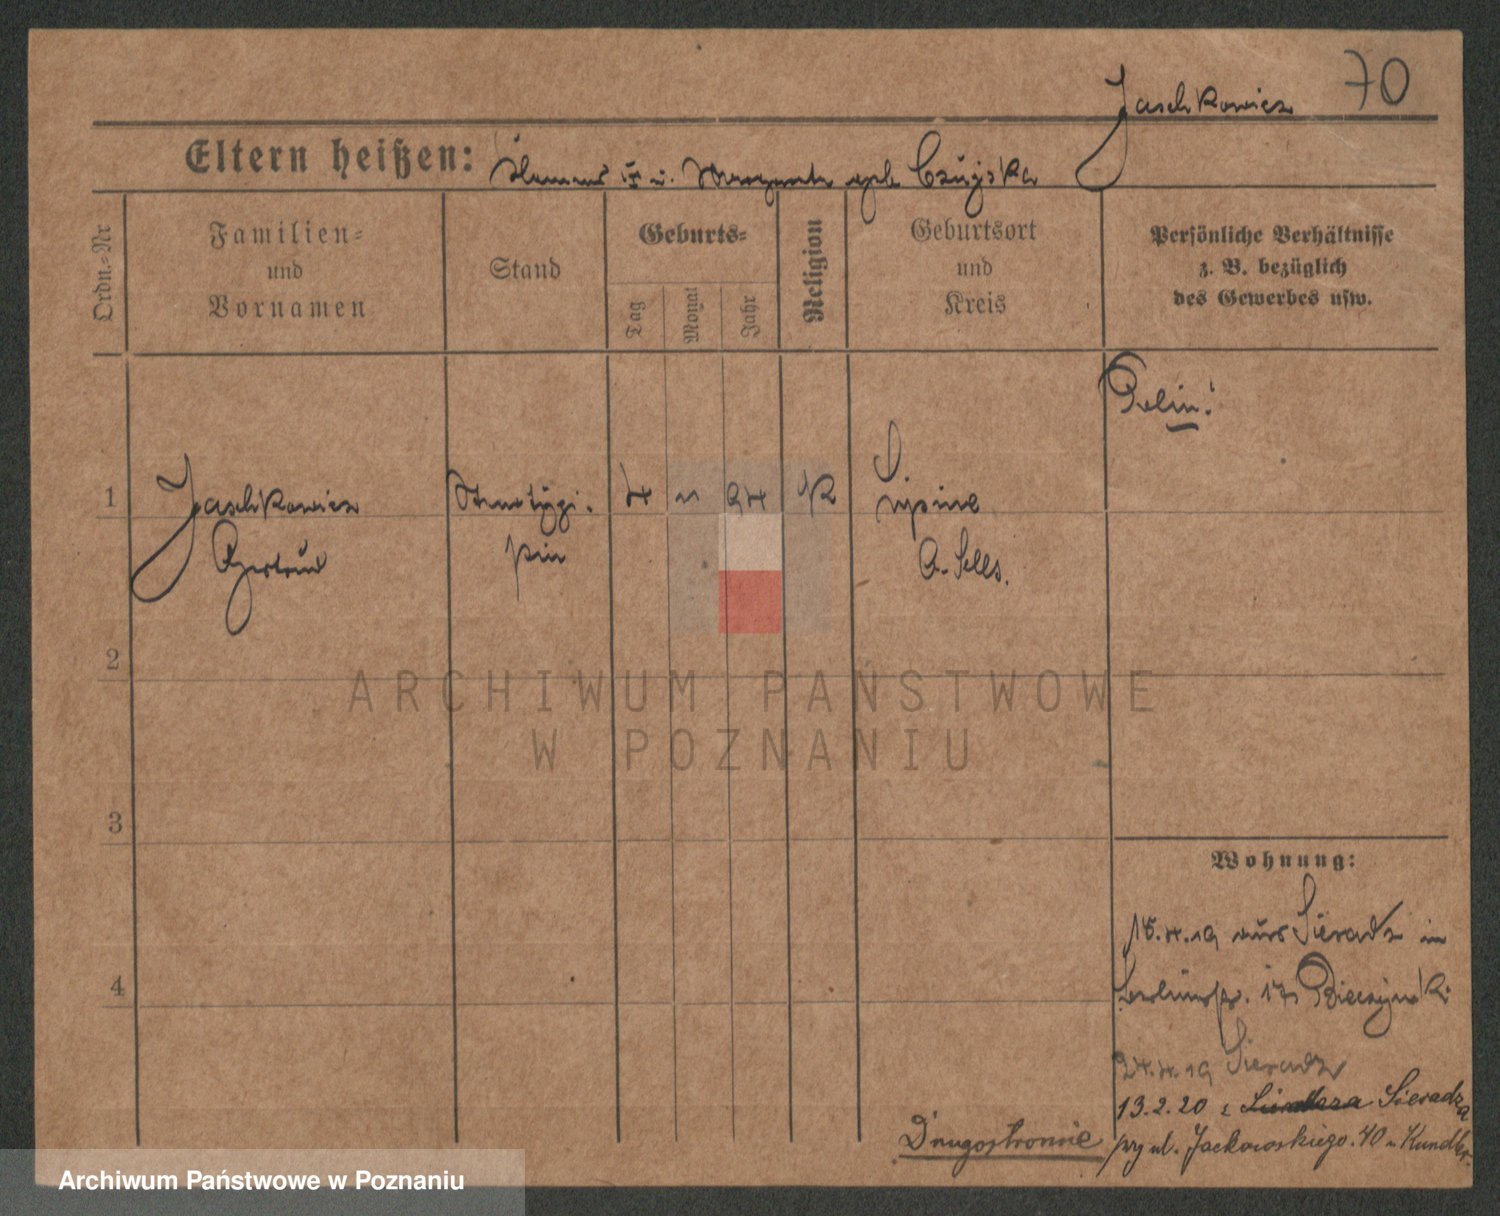 70
Jaschkowicz
Eltern heißen: u. geb. Czujska
Ordn.=Nr
Familien=
und
Vornamen
Stand
Geburts=
Tag
Monat
Jahr
Religion
Geburtsort
und
Kreis
Persönliche Verhältnisse
z. B. bezüglich
des Gewerbes usw.
Polin!
1
Jaschkowicz
Gertrud
Stenotypi.
stin
4 94 K
Lipine
O. Schles.
2
3
4
Wohnung:
15.4.19 aus Sieradz in
17
24.4.19 Sieradz
13.2.20 z Sieradza
przy ul. Jackowskiego 40 u
Drugostronnie
ARCHIWUM PAŃSTWOWE
W POZNANIU
Archiwum Państwowe w Poznaniu